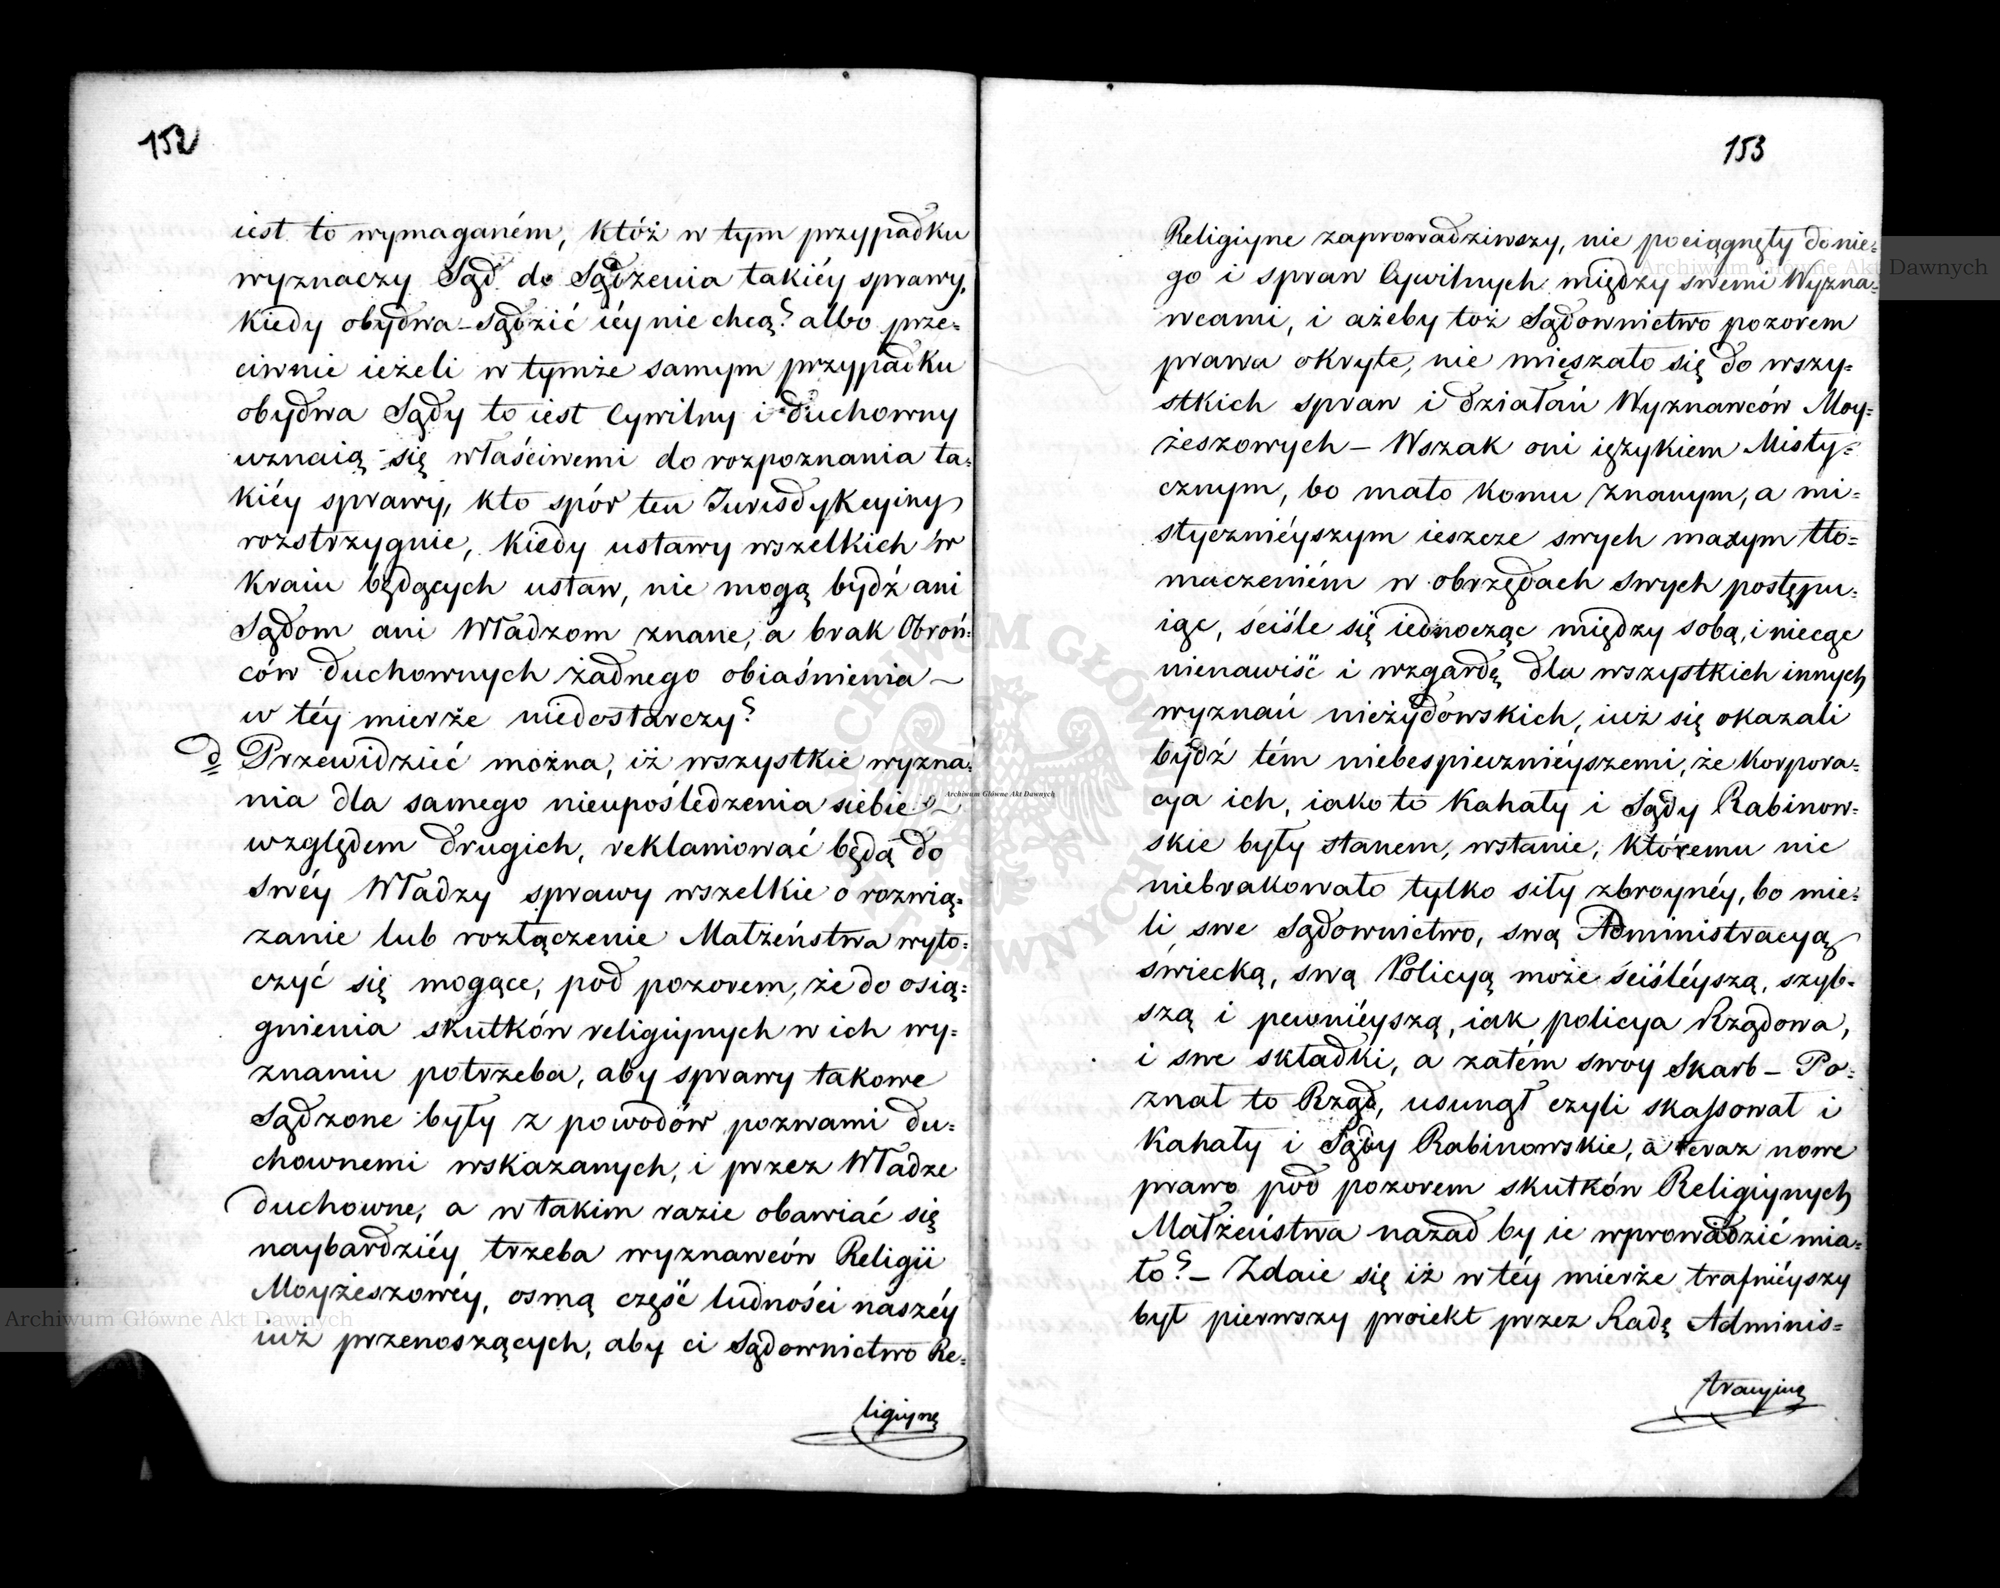 152
iest to wymaganém, któż w tym przypadku
wyznaczy Sąd do Sądzenia takiéy sprawy,
kiedy obydwa sądzić iéy nie chcą? albo prze=
ciwnie ieżeli w tymże samym przypadku
obydwa Sądy to iest Cywilny i duchowny
uznaią się właściwemi do rozpoznania ta=
kiéy sprawy, kto spór ten Jurisdykcyiny
rozstrzygnie, kiedy ustawy wszelkich w
kraiu będących ustaw, nie mogą bydź ani
Sądom ani Władzom znane, a brak Obroń=
ców duchownych żadnego obiaśnienia —
w téy mierze niedostarczy?
d Przewidzieć można, iż wszystkie wyzna=
nia dla samego nieupośledzenia siebie —
względem drugich, reklamować będą do
swéy Władzy sprawy wszelkie o rozwią=
zanie lub rozłączenie Małżeństwa wyto=
czyć się mogące, pod pozorem, że do osią=
gnienia skutków religiynych w ich wy=
znaniu potrzeba, aby sprawy takowe
Sądzone były z powodów pozwami du=
chownemi wskazanych, i przez Władze
duchowne, a w takim razie obawiać się
naybardziéy trzeba wyznawców Religii
Moyżeszowéy, osmą część ludności naszéy
iuż przenoszących, aby ci Sądownictwo Re=
ligiyne
153
Religiyne zaprowadziwszy, nie pociągnęły do nie=
go i spraw Cywilnych między swemi Wyzna=
wcami, i ażeby toż Sądownictwo pozorem
prawa okryte, nie mięszało się do wszy=
stkich spraw i działań Wyznawców Moy=
żeszowych — Wszak oni ięzykiem Misty=
cznym, bo mało komu znanym, a mi=
stycznieyszym ieszcze swych maxym tło=
maczeniém w obrzędach swych postępu=
iąc, ściśle się iednocząc między sobą, i niecąc
nienawiść i wzgardę dla wszystkich innych
wyznań nieżydowskich, iuż się okazali
bydź tém niebespiecznieyszemi, że korpora=
cya ich, iako to Kahały i Sądy Rabinow=
skie były stanem, w stanie, któremu nic
niebrakowało tylko siły zbroynéy, bo mie=
li swe Sądownictwo, swą Administracyą
świecką, swą Policyą może ściśléyszą, szyb=
szą i pewniéyszą, iak policya Rządowa,
i swe składki, a zatém swoy Skarb — Po=
znał to Rząd, usunął czyli skassował i
Kahały i Sądy Rabinowskie, a teraz nowe
prawo pod pozorem skutków Religiynych
Małżeństwa nazad by ie wprowadzić mia=
ło? — Zdaie się iż w téy mierze trafniéyszy
był pierwszy proiekt przez Radę Adminis=
tracyiną
Archiwum Główne Akt Dawnych
Archiwum Główne Akt Dawnych
Archiwum Główne Akt Dawnych
ARCHIWUM GŁÓWNE AKT DAWNYCH